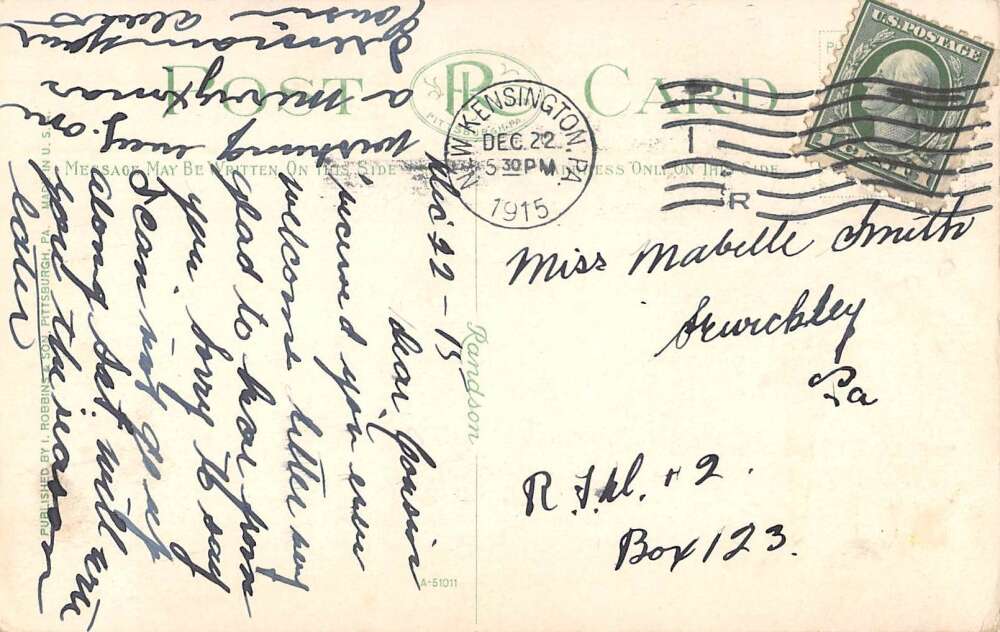 POST CARD
PR
PITTSBURGH, PA.
MESSAGE MAY BE WRITTEN ON THIS SIDE
ADDRESS ONLY ON THE SIDE
U.S. POSTAGE
NEW KENSINGTON, PA.
DEC. 22
5 30 PM
1915
R
Miss Mabelle Smith
Sewickley
Pa
R.F.D. # 2.
Box 123.
Randson
A-51011
PUBLISHED BY I. ROBBINS & SON, PITTSBURGH, PA. MADE IN U.S.A.
Dec 22-15
Dear Cousin
received you ever
wellcome letter very
glad to hear from
you sorry to say
I can not go up
along Sat will write
you the reason
later
wishing every one
a merry xmas
I remain your
Cousin